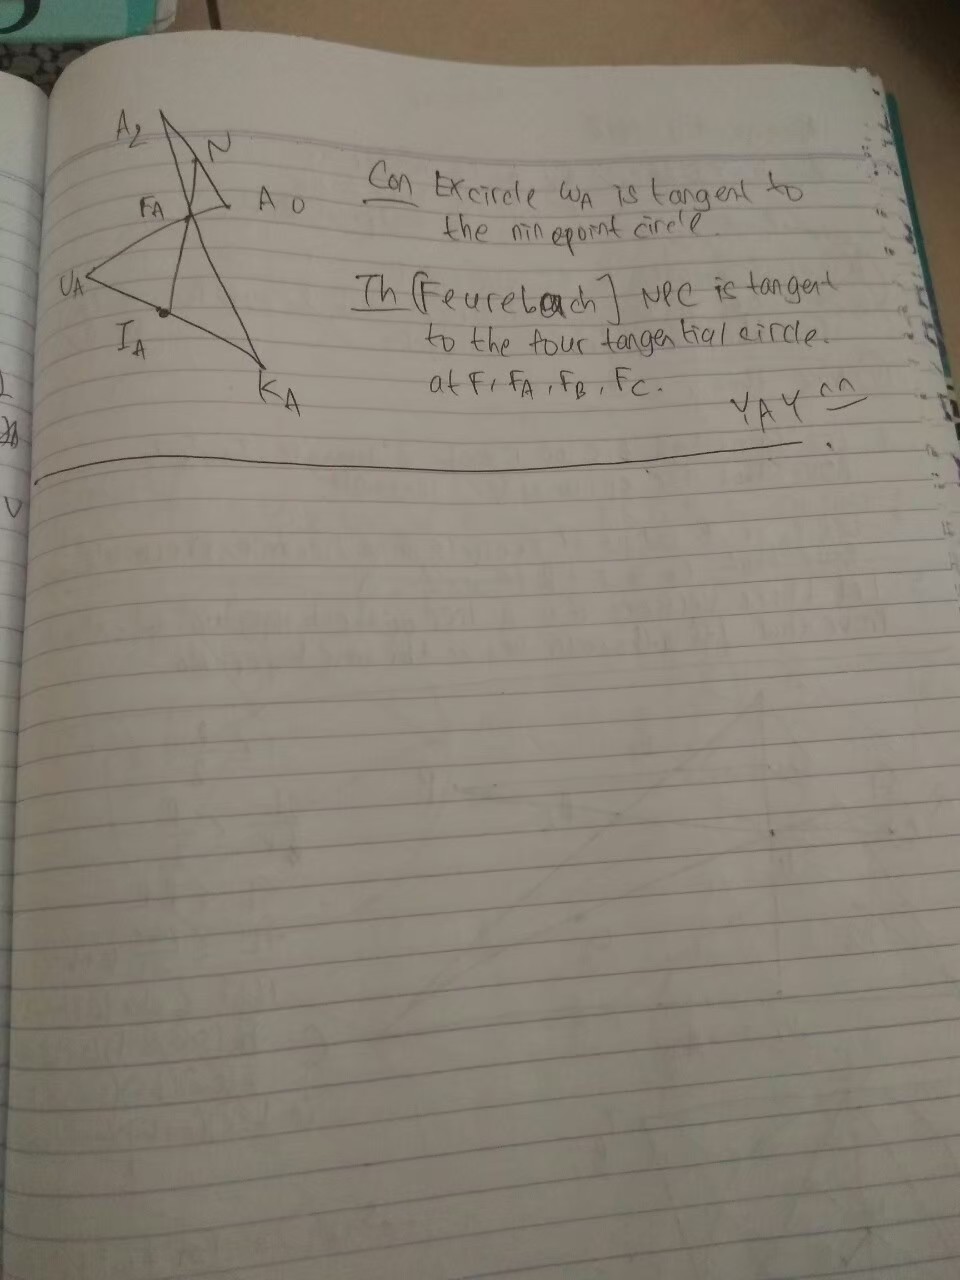 A2
N
FA
A0
UA
IA
KA
Con Excircle ωA is tangent to
the ninepoint circle.
Th [Feurebach] NPC is tangent
to the four tangential circle.
at F, FA, FB, FC.
YAY ^^